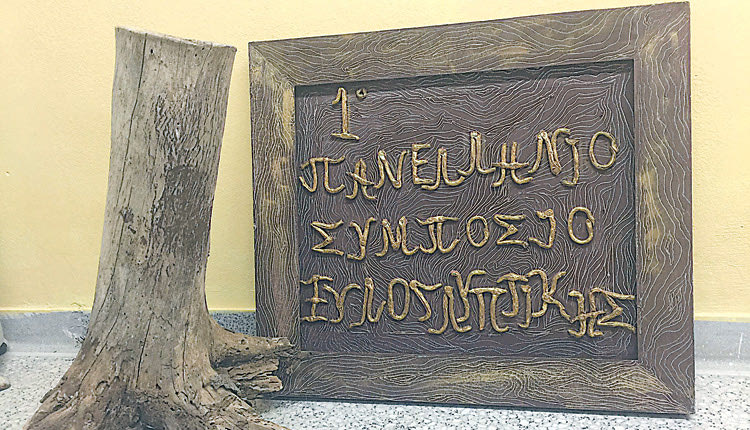 1°
ΠΑΝΕΛΛΗΝΙΟ
ΣΥΜΠΟΣΙΟ
ΞΥΛΟΓΛΥΠΤΙΚΗΣ